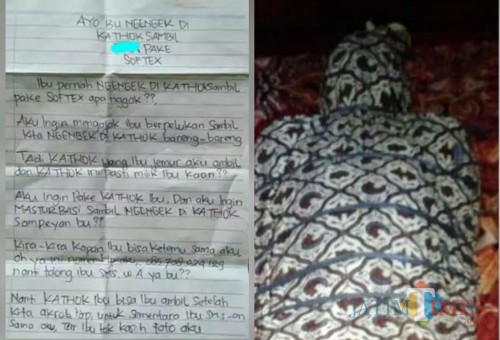 AYO BU NGENGEK DI
KATHOK SAMBIL
PAKE
SOFTEX
Ibu pernah NGENGEK DI KATHOK sambil
pake SOFTEX apa nggak ??
Aku Ingin mengajak ibu berpelukan sambil
kita NGENGEK DI KATHOK bareng-bareng
Tadi KATHOK yang Ibu jemur aku ambil
dan KATHOK ini pasti milik Ibu kaan ??
Aku Ingin Pake KATHOK Ibu. Dan aku Ingin
MASTURBASI Sambil NGENGEK DI KATHOK
Sampeyan bu ??
Kira-kira kapan Ibu bisa ketemu sama aku
oh ya ini nomer
nanti tolong Ibu SMS. W.A ya bu ??
Nanti KATHOK Ibu bisa Ibu ambil Setelah
kita akrab untuk sementara Ibu sms-an
sama aku, Ibu foto aku
JATIM